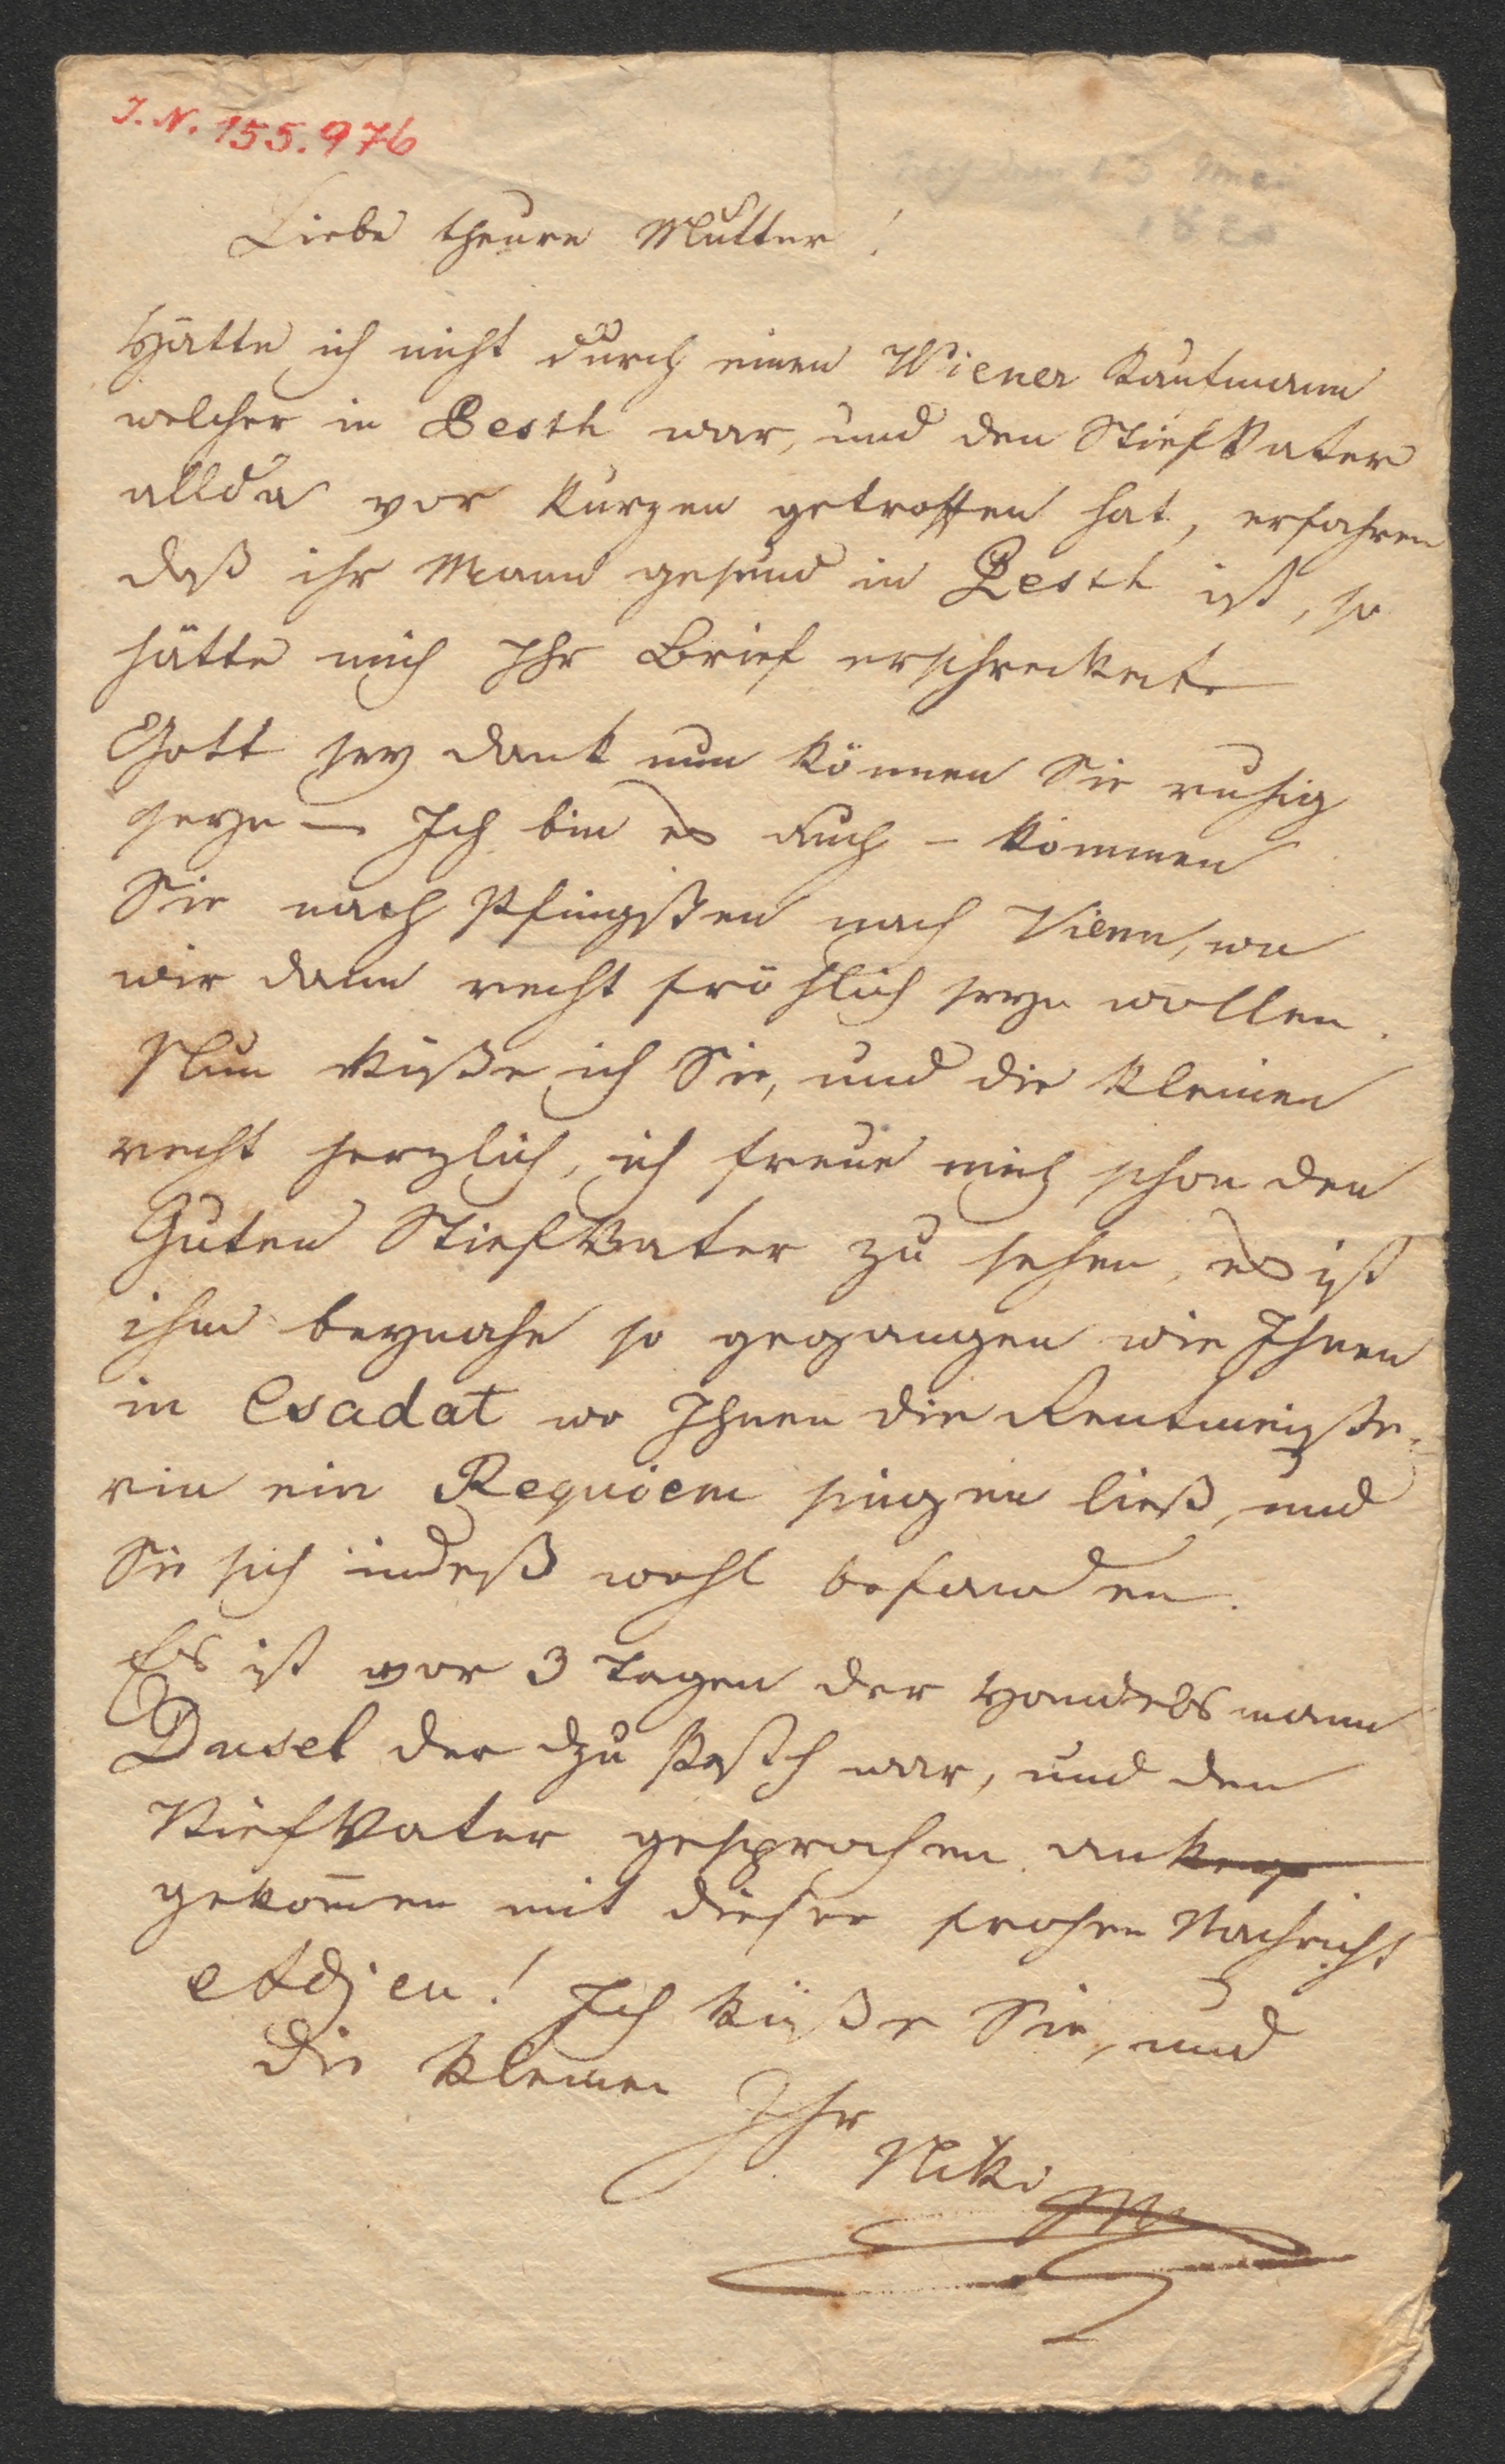 J. N. 155.976
Liebe theure Mutter!
Hätte ich nicht durch einen Wiener Kaufmann
welcher in Pesth war, und den Stiefvater
allda vor kurzen getroffen hat, erfahren
daß ihr Mann gesund in Pesth ist, so
hätte mich Ihr Brief erschreckt
Gott sey dank nun können Sie ruhig
seyn — Ich bin es auch – kommen
Sie nach Pfingsten nach Vienn, wo
wir dann recht fröhlich seyn wollen.
Nun küße ich Sie, und die kleinen
recht herzlich, ich freue mich schon den
Guten Stiefvater zu sehen, es ist
ihm beynahe so gegangen wie Ihnen
in Csadat wo Ihnen die Rentmeiste-
rin ein Requiem singen ließ, und
Sie sich indeß wohl befanden.
Es ist vor 3 Tagen der Handelsmann
der zu Pesth war, und den
Stiefvater gesprochen an
gekomen mit dieser frohen Nachricht
Adjeu! Ich küße Sie, und
die kleinen
Ihr
Niki